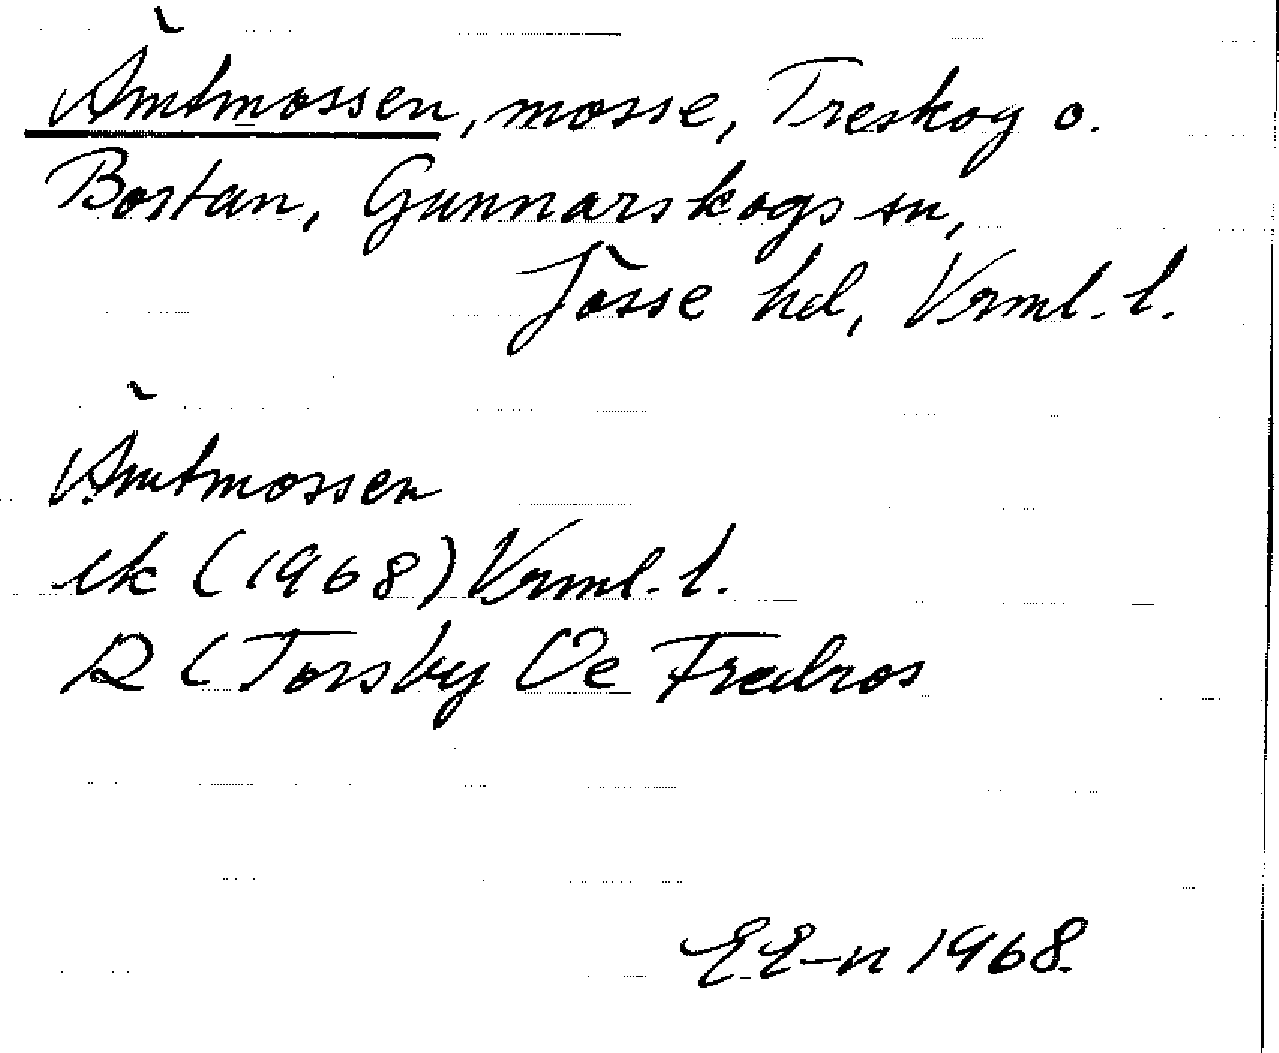 Ämtmossen, mosse, Treskog o.
Bortan, Gunnarskogs sn,
Jösse hd, Vrml. l.
Ämtmossen
ek (1968) Vrml. l.
R (Torsby Oe Fredros
EE-n 1968.